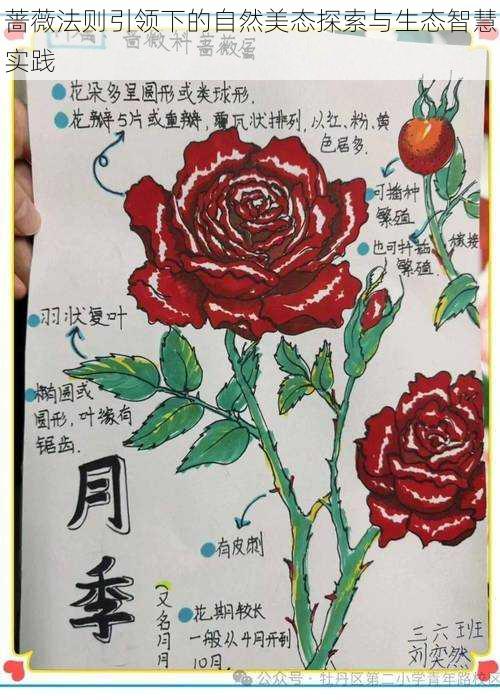 蔷薇法则引领下的自然美态探索与生态智慧
实践
蔷薇科蔷薇
花朵多呈圆形或类球形.
花瓣5片或重瓣，覆瓦状排列，以红、粉、黄
色居多.
可播种
繁殖
也可扦插 嫁接
繁殖.
羽状复叶
椭圆或
圆形，叶缘有
锯齿.
月
季
(又名月月
有皮刺
花期较长
一般从4月开到
10月.
三六班
刘奕然
公众号·牡丹区第二小学青年路校区